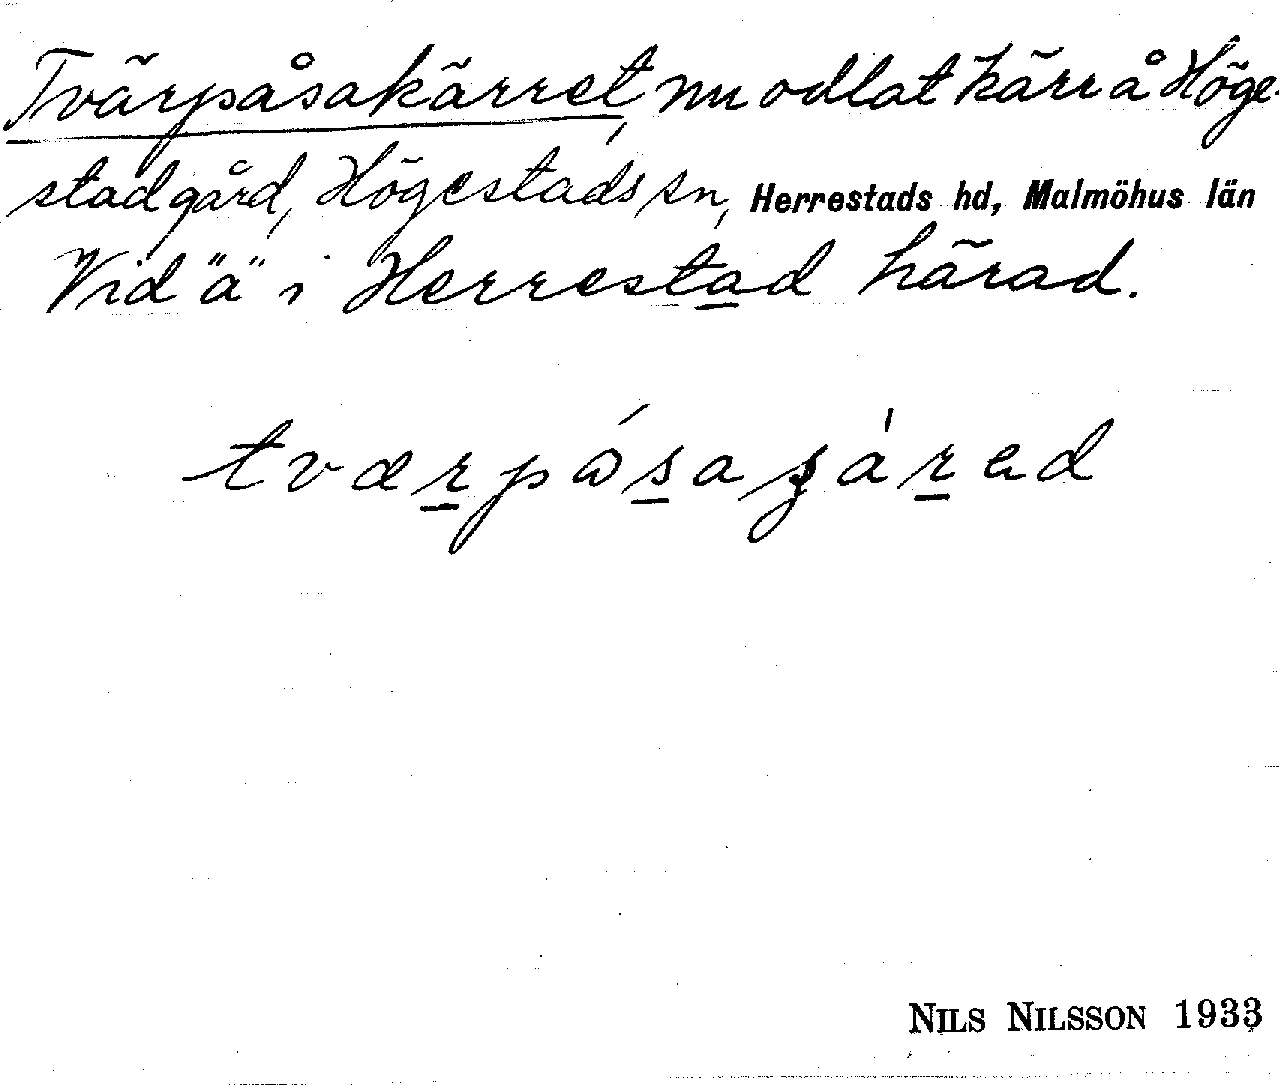 Tvärpåsakärret, nu odlat kärr å Höge-
stad gård, Högestads sn, Herrestads hd, Malmöhus län
Vid "ä" i Herrestad härad.
NILS NILSSON 1933